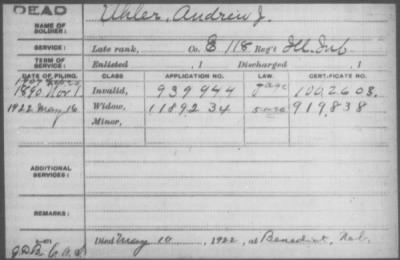 DEAD
NAME OF SOLDIER: Uhler, Andrew J.
SERVICE: Late rank, Co. E 118 Reg't Ill. Inf.
TERM OF SERVICE: Enlisted , 1 Discharged , 1
DATE OF FILING. CLASS APPLICATION NO. LAW. CERTIFICATE NO.
1890 Nov. 1 Invalid, 939944 1002603.
1922 May 16 Widow, 1189234 919,838
Minor,
ADDITIONAL SERVICES:
REMARKS:
Died May 10, 1922, at Benedict, Neb.